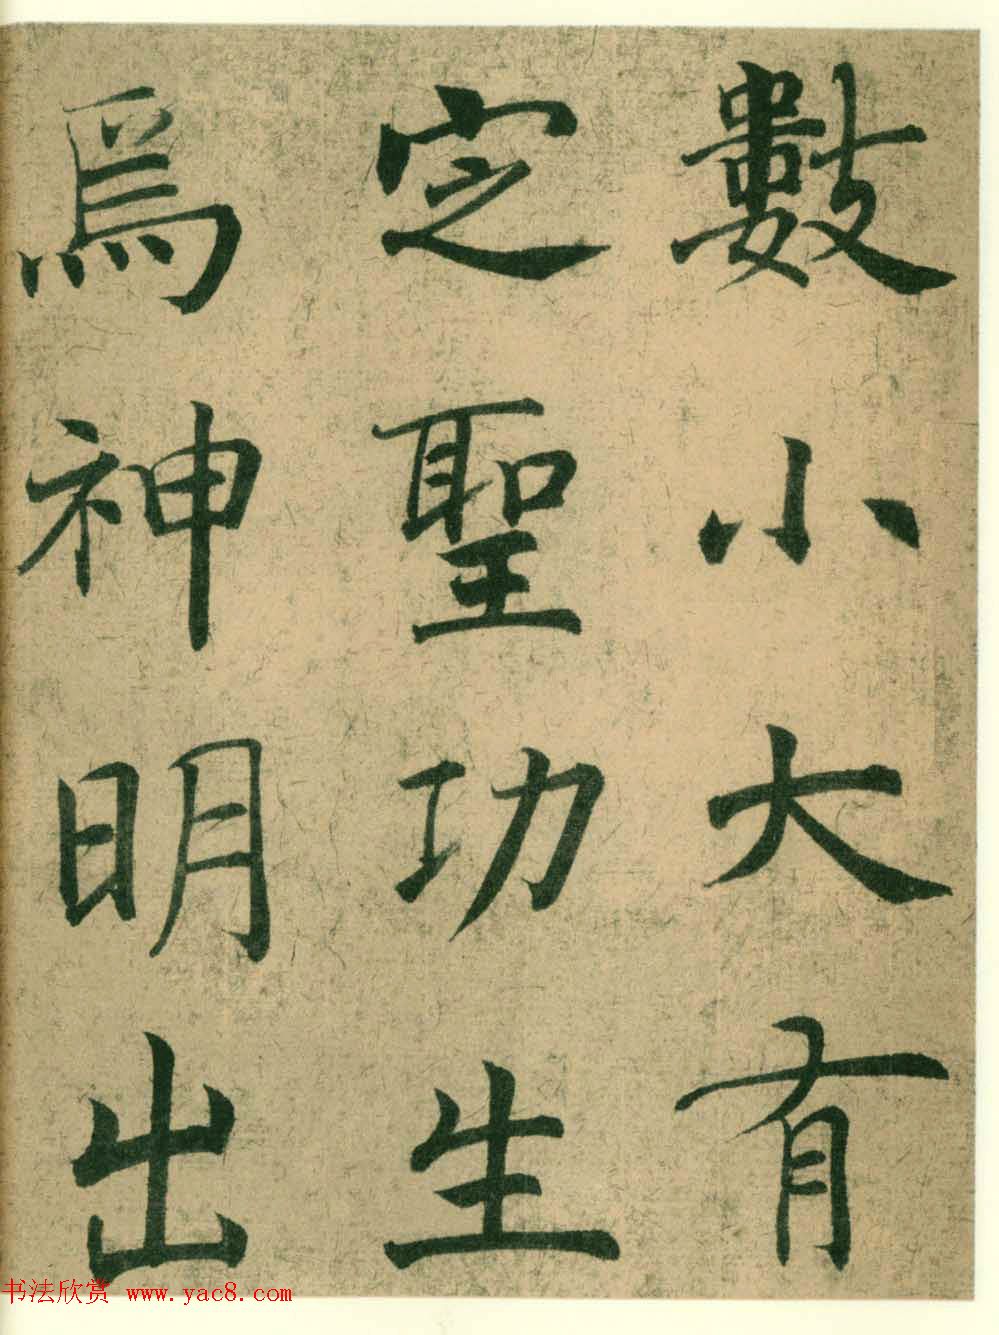 數小大有
定聖功生
焉神明出
书法欣赏 www.yac8.com